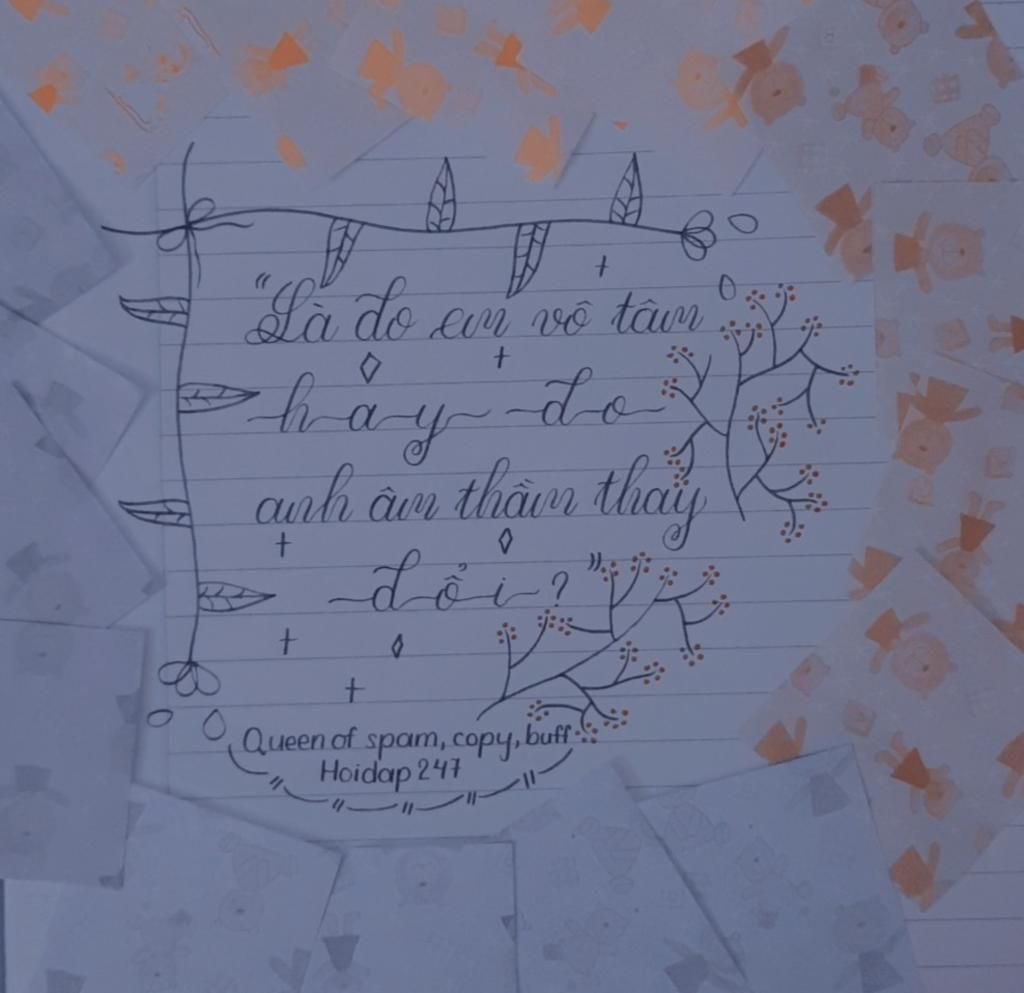 "Là do em vô tâm
hay do
anh âm thầm thay
đổi?"
Queen of spam, copy, buff
Hoidap 247